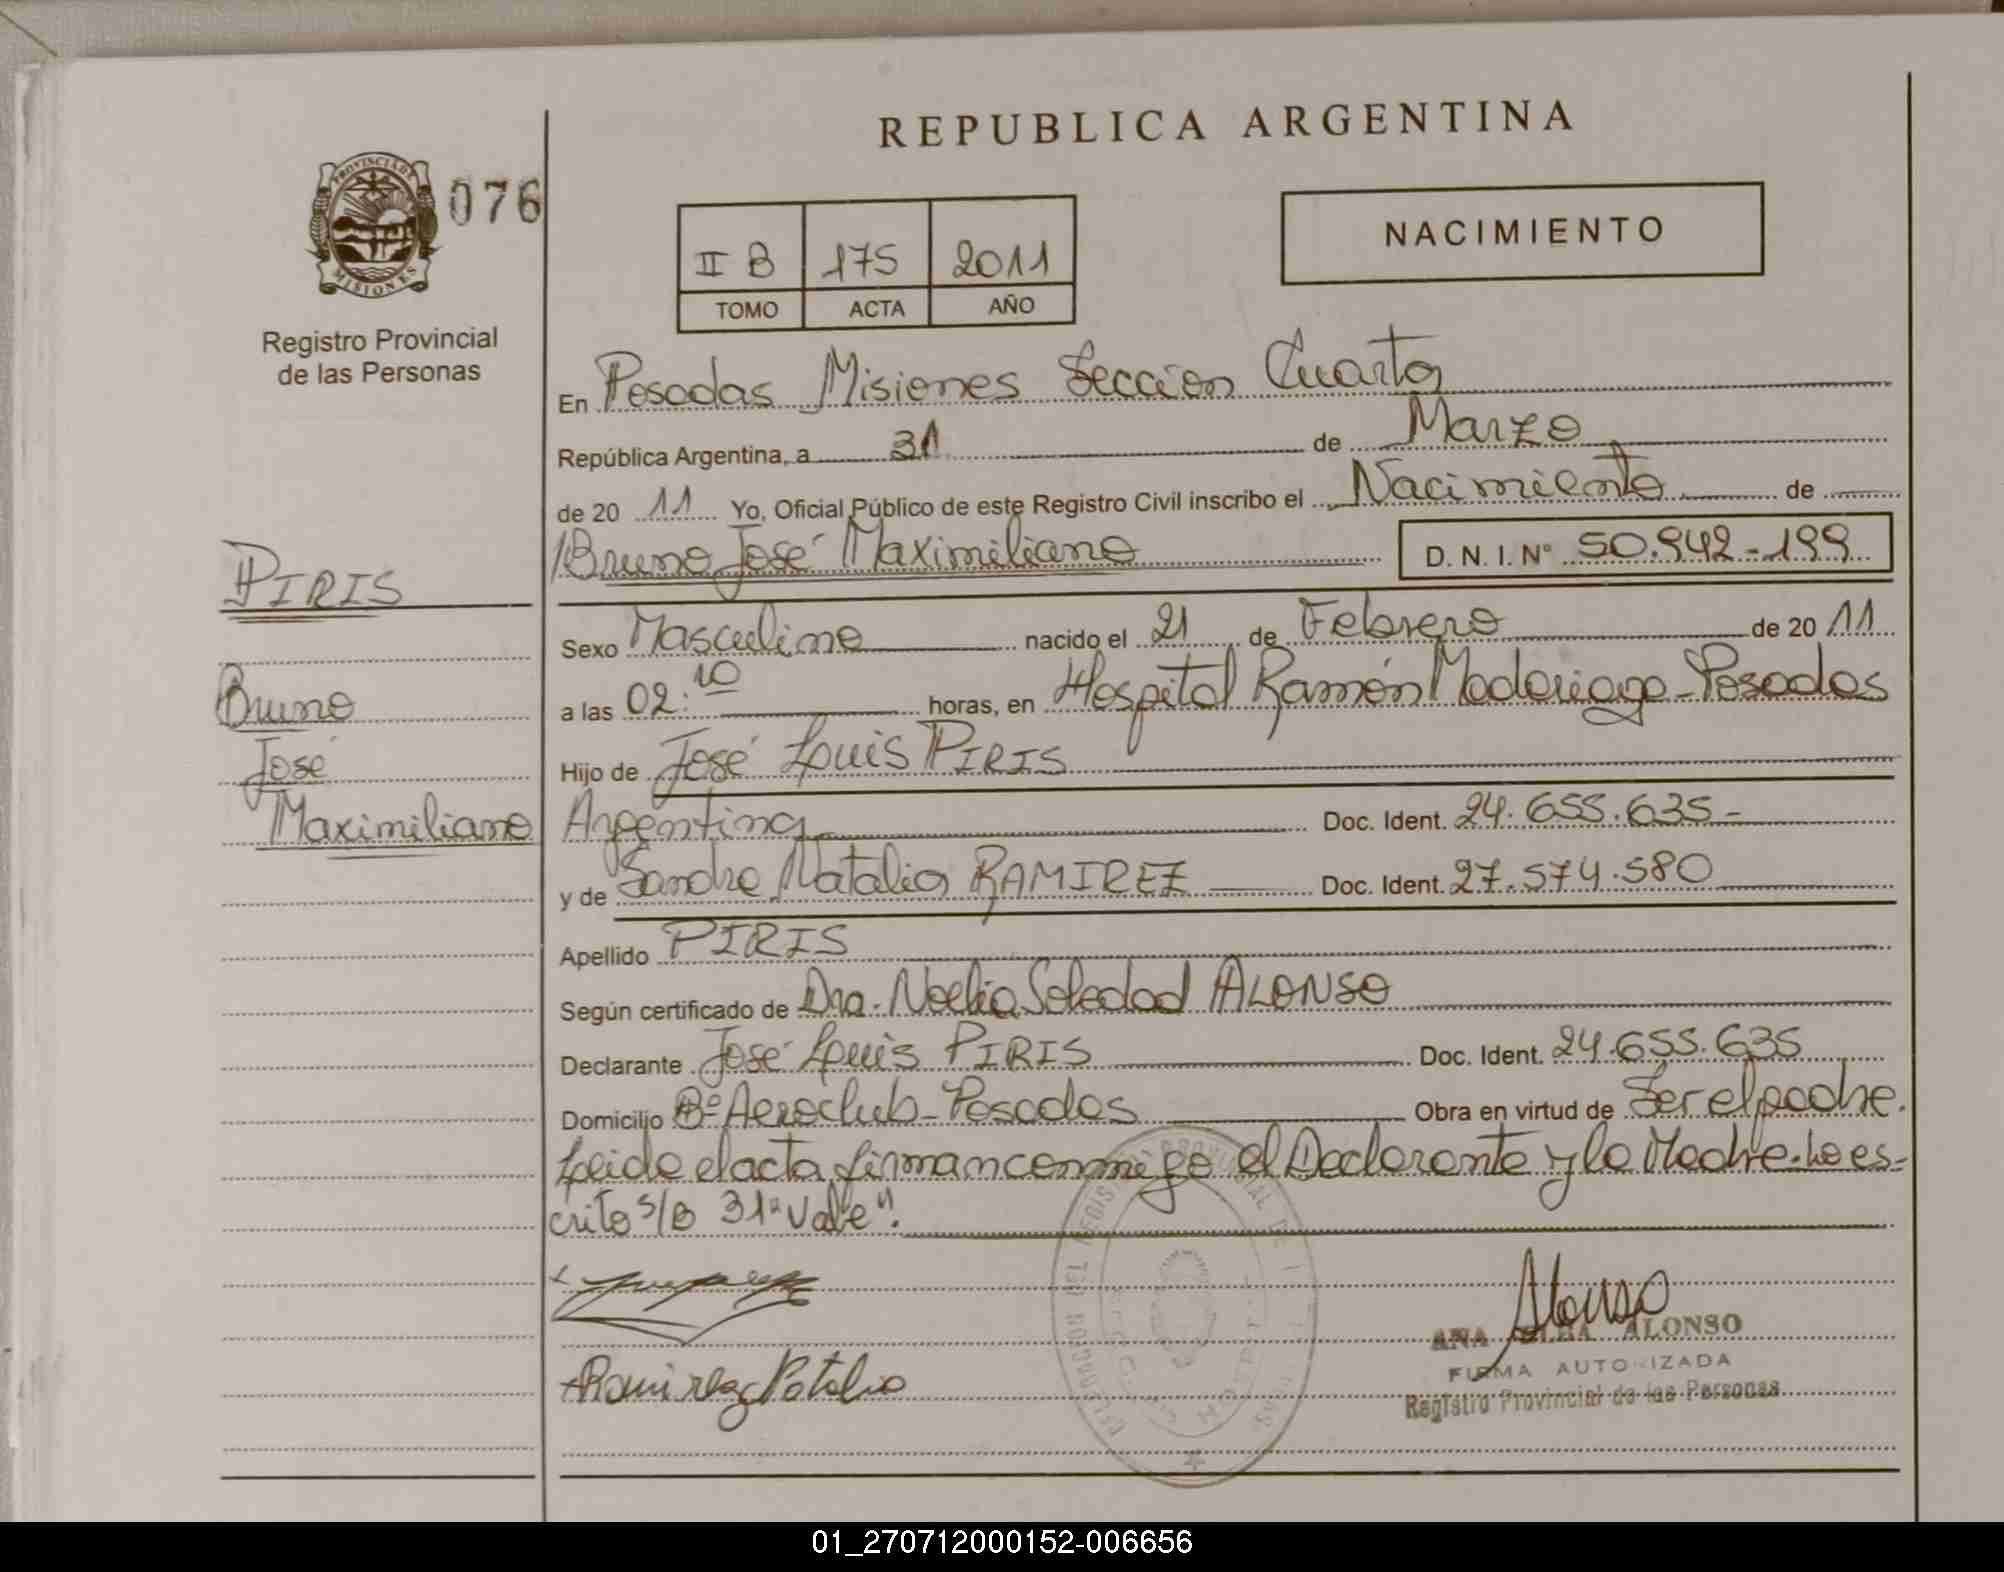 REPUBLICA ARGENTINA
PROVINCIA DE MISIONES
076
NACIMIENTO
II B 175 2011
TOMO ACTA AÑO
Registro Provincial
de las Personas
En Posadas Misiones Seccion Cuarta
República Argentina, a 31 de Marzo
de 20 11 Yo, Oficial Público de este Registro Civil inscribo el Nacimiento de
Bruno José Maximiliano D. N. I. N° 50.942-199
PIRIS
Sexo Masculino nacido el 21 de Febrero de 20 11
Bruno
a las 02:10 horas, en Hospital Ramón Madariaga-Posadas
José
Hijo de José Luis PIRIS
Maximiliano
Argentina Doc. Ident. 24.655.635-
y de Sandra Natalia RAMIREZ Doc. Ident. 27.574.580
Apellido PIRIS
Según certificado de Dra. Noelia Soledad ALONSO
Declarante José Luis PIRIS Doc. Ident. 24.655.635
Domicilio Bº Aeroclub-Posadas Obra en virtud de Ser el padre.
Leida el acta firman conmigo el Declarante y la Madre. Lo es-
crito s/b 31 "Vale".
Alonso
ANA ALONSO
FIRMA AUTORIZADA
Registro Provincial de las Personas
Ramirez Natalia
01_270712000152-006656